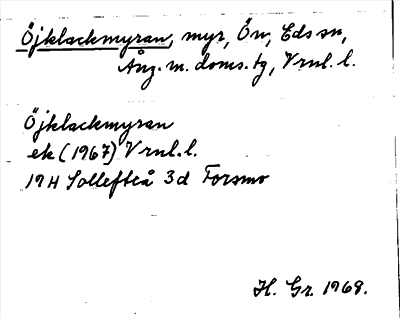 Öjklackmyran, myr, Ön, Eds sn,
Ång. m. doms. tg, Vrnl. l.
Öjklackmyran
ek (1967) Vrnl. l.
19H Sollefteå 3d Forsmo
H. Gr. 1968.